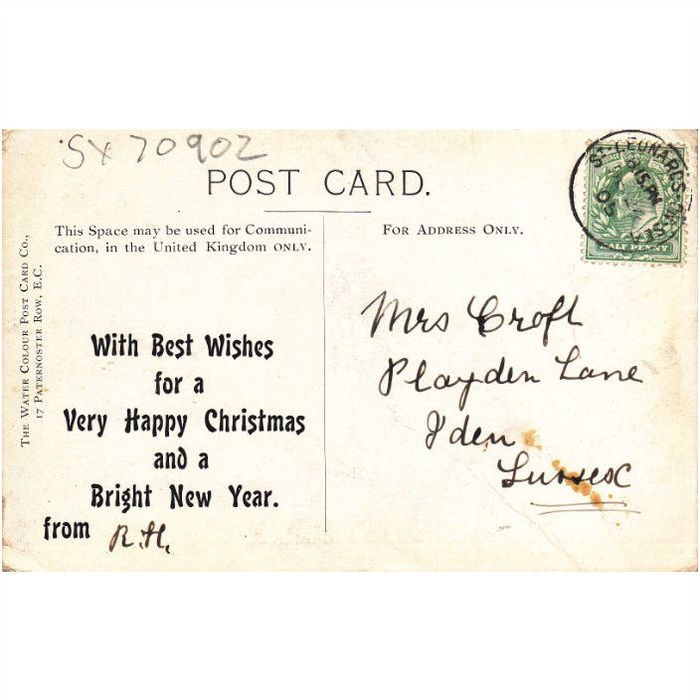 SX 70902
POST CARD.
This Space may be used for Communi-
cation, in the United Kingdom ONLY.
FOR ADDRESS ONLY.
THE WATER COLOUR POST CARD CO.,
17 PATERNOSTER ROW, E.C.
With Best Wishes
for a
Very Happy Christmas
and a
Bright New Year.
from R.H.
Mrs Croft
Playden Lane
Iden
Sussex
ST. LEONARDS
HALF PENNY